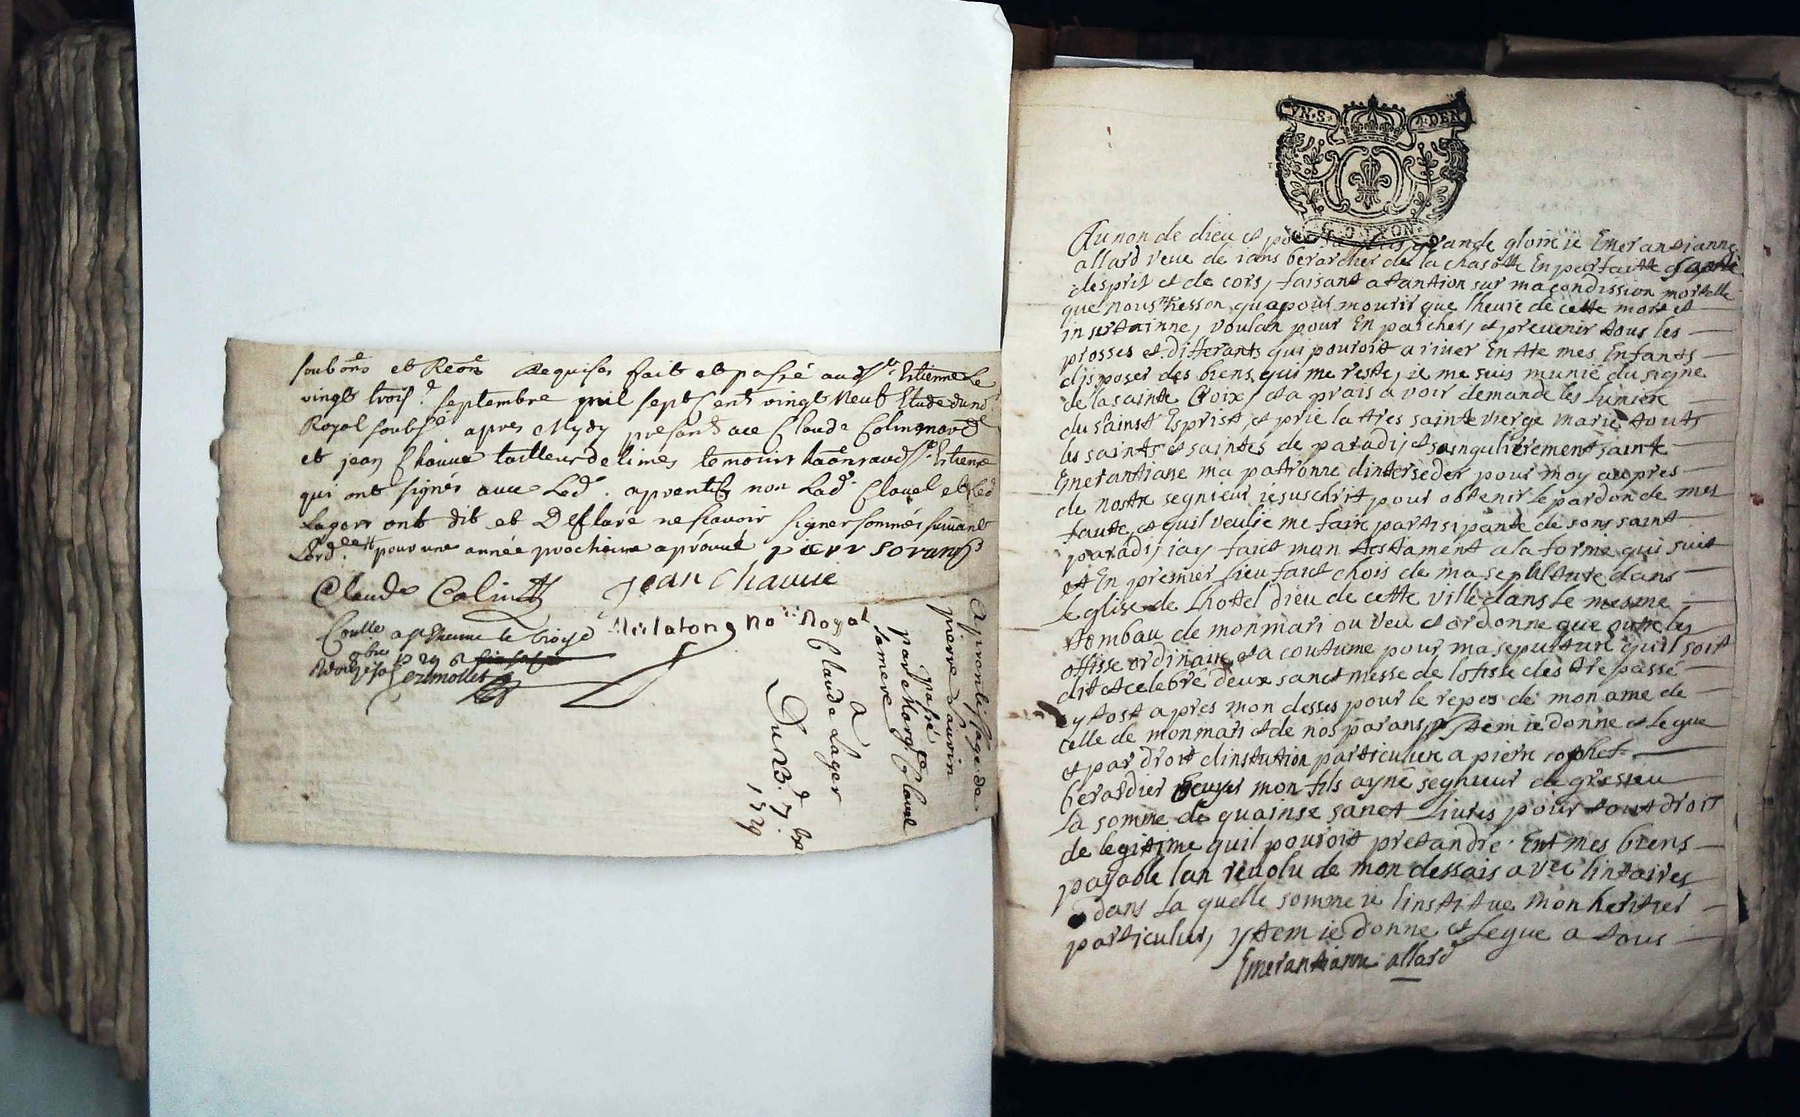 soub.né et Reōn Requises fait et passé aud St. Estienne Le
vingt trois.e septembre mil sept Cent vingt Neuf Etude du no.e
Royal soub.né apres Mydy presants Claude Colin
et jean Chauve tailleur de limes temoins aud St. Estienne
qui ont signés avec Led. aprentif non Lad. Clavel et Led
Lager ont dit et Desclaré ne scavoir signer sommés suivant
L'ord.ce pour une année prochaine aprouvé pierr
Claude Colin
jean Chauve
No.re Royal
Conllé a St Etienne le
Aprantissage de
pierre
passé
par Marg. Clavel
sa mere
A
Claude Lager
Du 23.e 7.bre
1729
VN.S. 4.DEN
LYON
Au non de dieu et plus grande gloire ie Emerantianne
allard veuve de de la chasotte En parfaitte
desprit et de cors, faisant atantion sur ma condission mortelle
que nous que pour mourir que lheure de cette mort et
insertainne, voulan pour Enpaicher, et prevenir tous les
prosses et differants qui pouroit ariver Entre mes Enfants
disposer des biens qui me reste, ie me suis munie du signe
de la sainte Croix, et aprais avoir demandé les lumiere
du sainst Esprist, et prié la tres sainte vierge marie touts
les saints et saintes de paradis et singulierement sainte
Emerantiane ma patronne dinterseder pour moy aupres
de nostre segnieur iesuschrit pour obtenir le pardon de mes
faute, et quil veulie me faire partisipante de sons saint
paradis, iay faict mon testament a la forme qui suit
et En premier lieu faict chois de ma sepulture dans
leglise de Lhottel dieu de cette ville dans le mesme
tombau de mon mari ou veu et ordonne que outre les
offisse ordinaire et acoutume pour ma sepulture quil soit
dit et celebré deux sanct messe de lofisse des trepassé
sytost apres mon desses pour le repos de mon ame de
celle de mon mari et de nos parans, ystem ie donne et legue
et par droit dinstitution particuliere a pierre
berardier Ecuyer mon fils ayné segnieur de gresieu
La somme de quainse sanct Livres pour tout droit
de legitime quil pouroit pretandre Ent mes biens
payable lan revolu de mon dessais avec lintaires
dans La quelle somme ie linstitue mon heritier
particulier, ystem ie donne et Legue a tous
Emerantianne allard